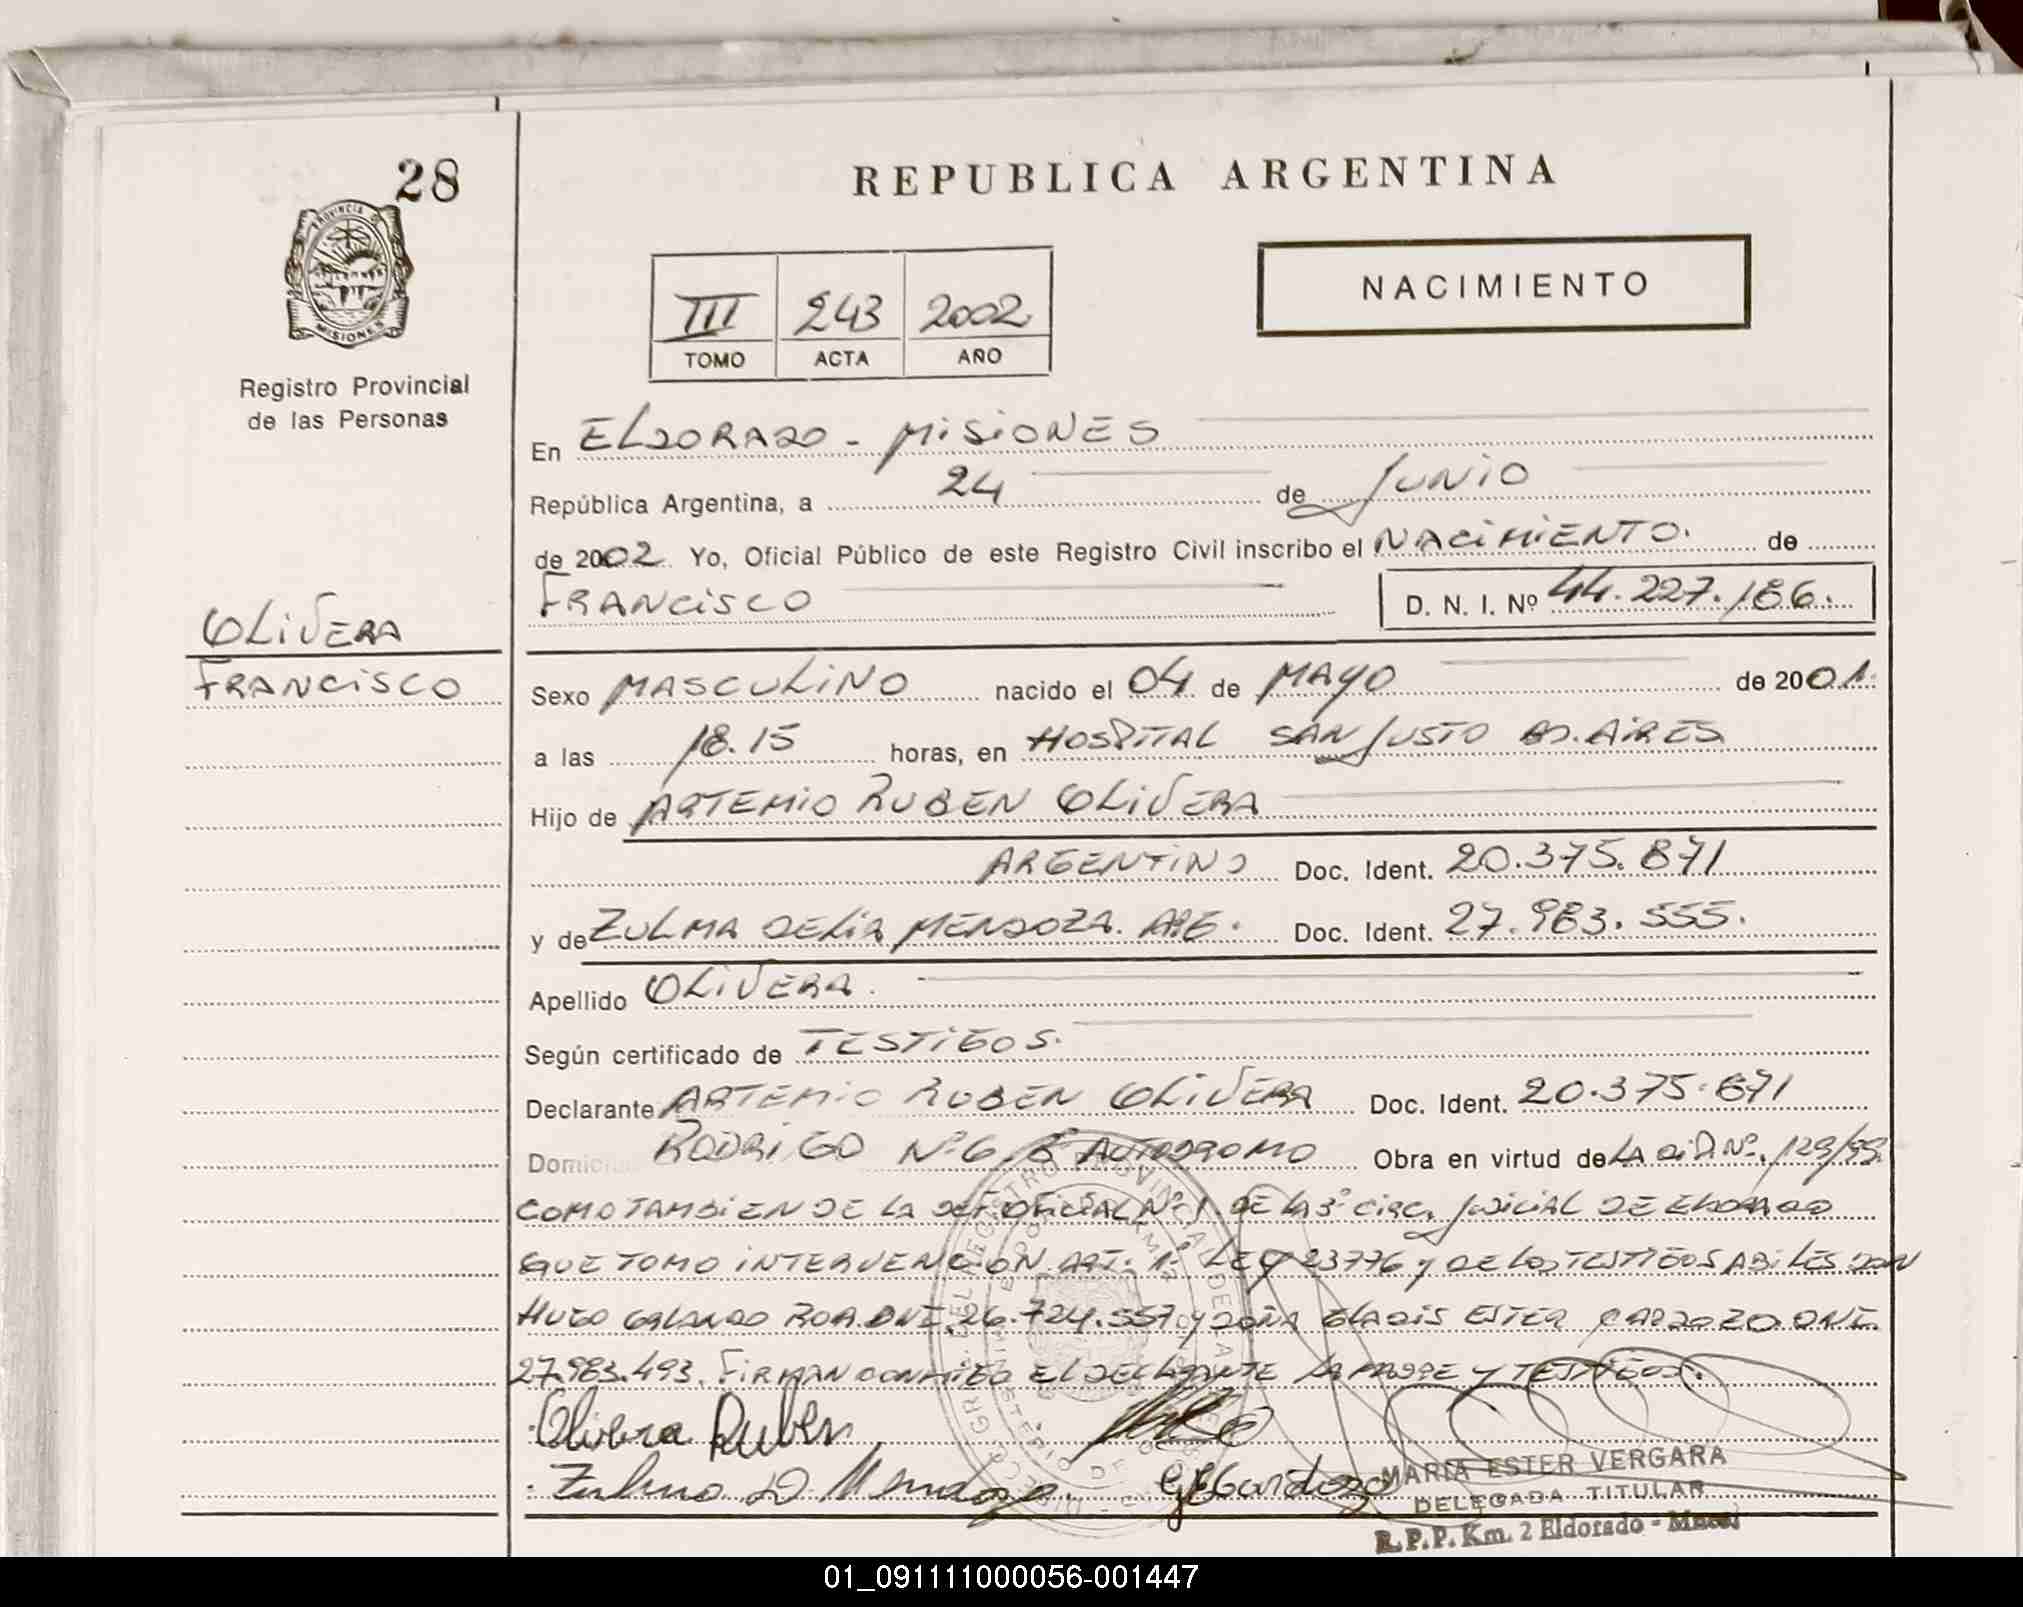 28
PROVINCIA DE
MISIONES
Registro Provincial
de las Personas
REPUBLICA ARGENTINA
NACIMIENTO
III 243 2002
TOMO ACTA AÑO
En ELDORADO - MISIONES
República Argentina, a 24 de JUNIO
de 2002. Yo, Oficial Público de este Registro Civil inscribo el NACIMIENTO. de
FRANCISCO D. N. I. Nº 44.227.186.
OLIVERA
FRANCISCO
Sexo MASCULINO nacido el 04 de MAYO de 2001.
a las 18.15 horas, en HOSPITAL SAN JUSTO BS.AIRES
Hijo de ARTEMIO RUBEN OLIVERA
ARGENTINO Doc. Ident. 20.375.871
y de ZULMA DELIA MENDOZA. ARG. Doc. Ident. 27.983.555.
Apellido OLIVERA.
Según certificado de TESTIGOS.
Declarante ARTEMIO RUBEN OLIVERA Doc. Ident. 20.375.871
Domicilio RODRIGO Nº 6 Bº AUTODROMO Obra en virtud de LA DI.Nº. 129/99.
COMO TAMBIEN DE LA DEF. OFICIAL Nº 1 DE LA 3º CIRC. JUDICIAL DE ELDORADO
QUE TOMO INTERVENCION ART. 1º LEY 23776 y DE LOS TESTIGOS ABILES DON
HUGO ORLANDO ROA. DNI. 26.724.557 y DOÑA GLADIS ESTER CARDOZO DNI.
27.983.493. FIRMAN CONMIGO EL DECLARANTE LA MADRE Y TESTIGOS.
Olivera Ruben
Zulma D Mendoza. GECardozo
MARIA ESTER VERGARA
DELEGADA TITULAR
R.P.P. Km. 2 Eldorado - Mnes.
01_091111000056-001447